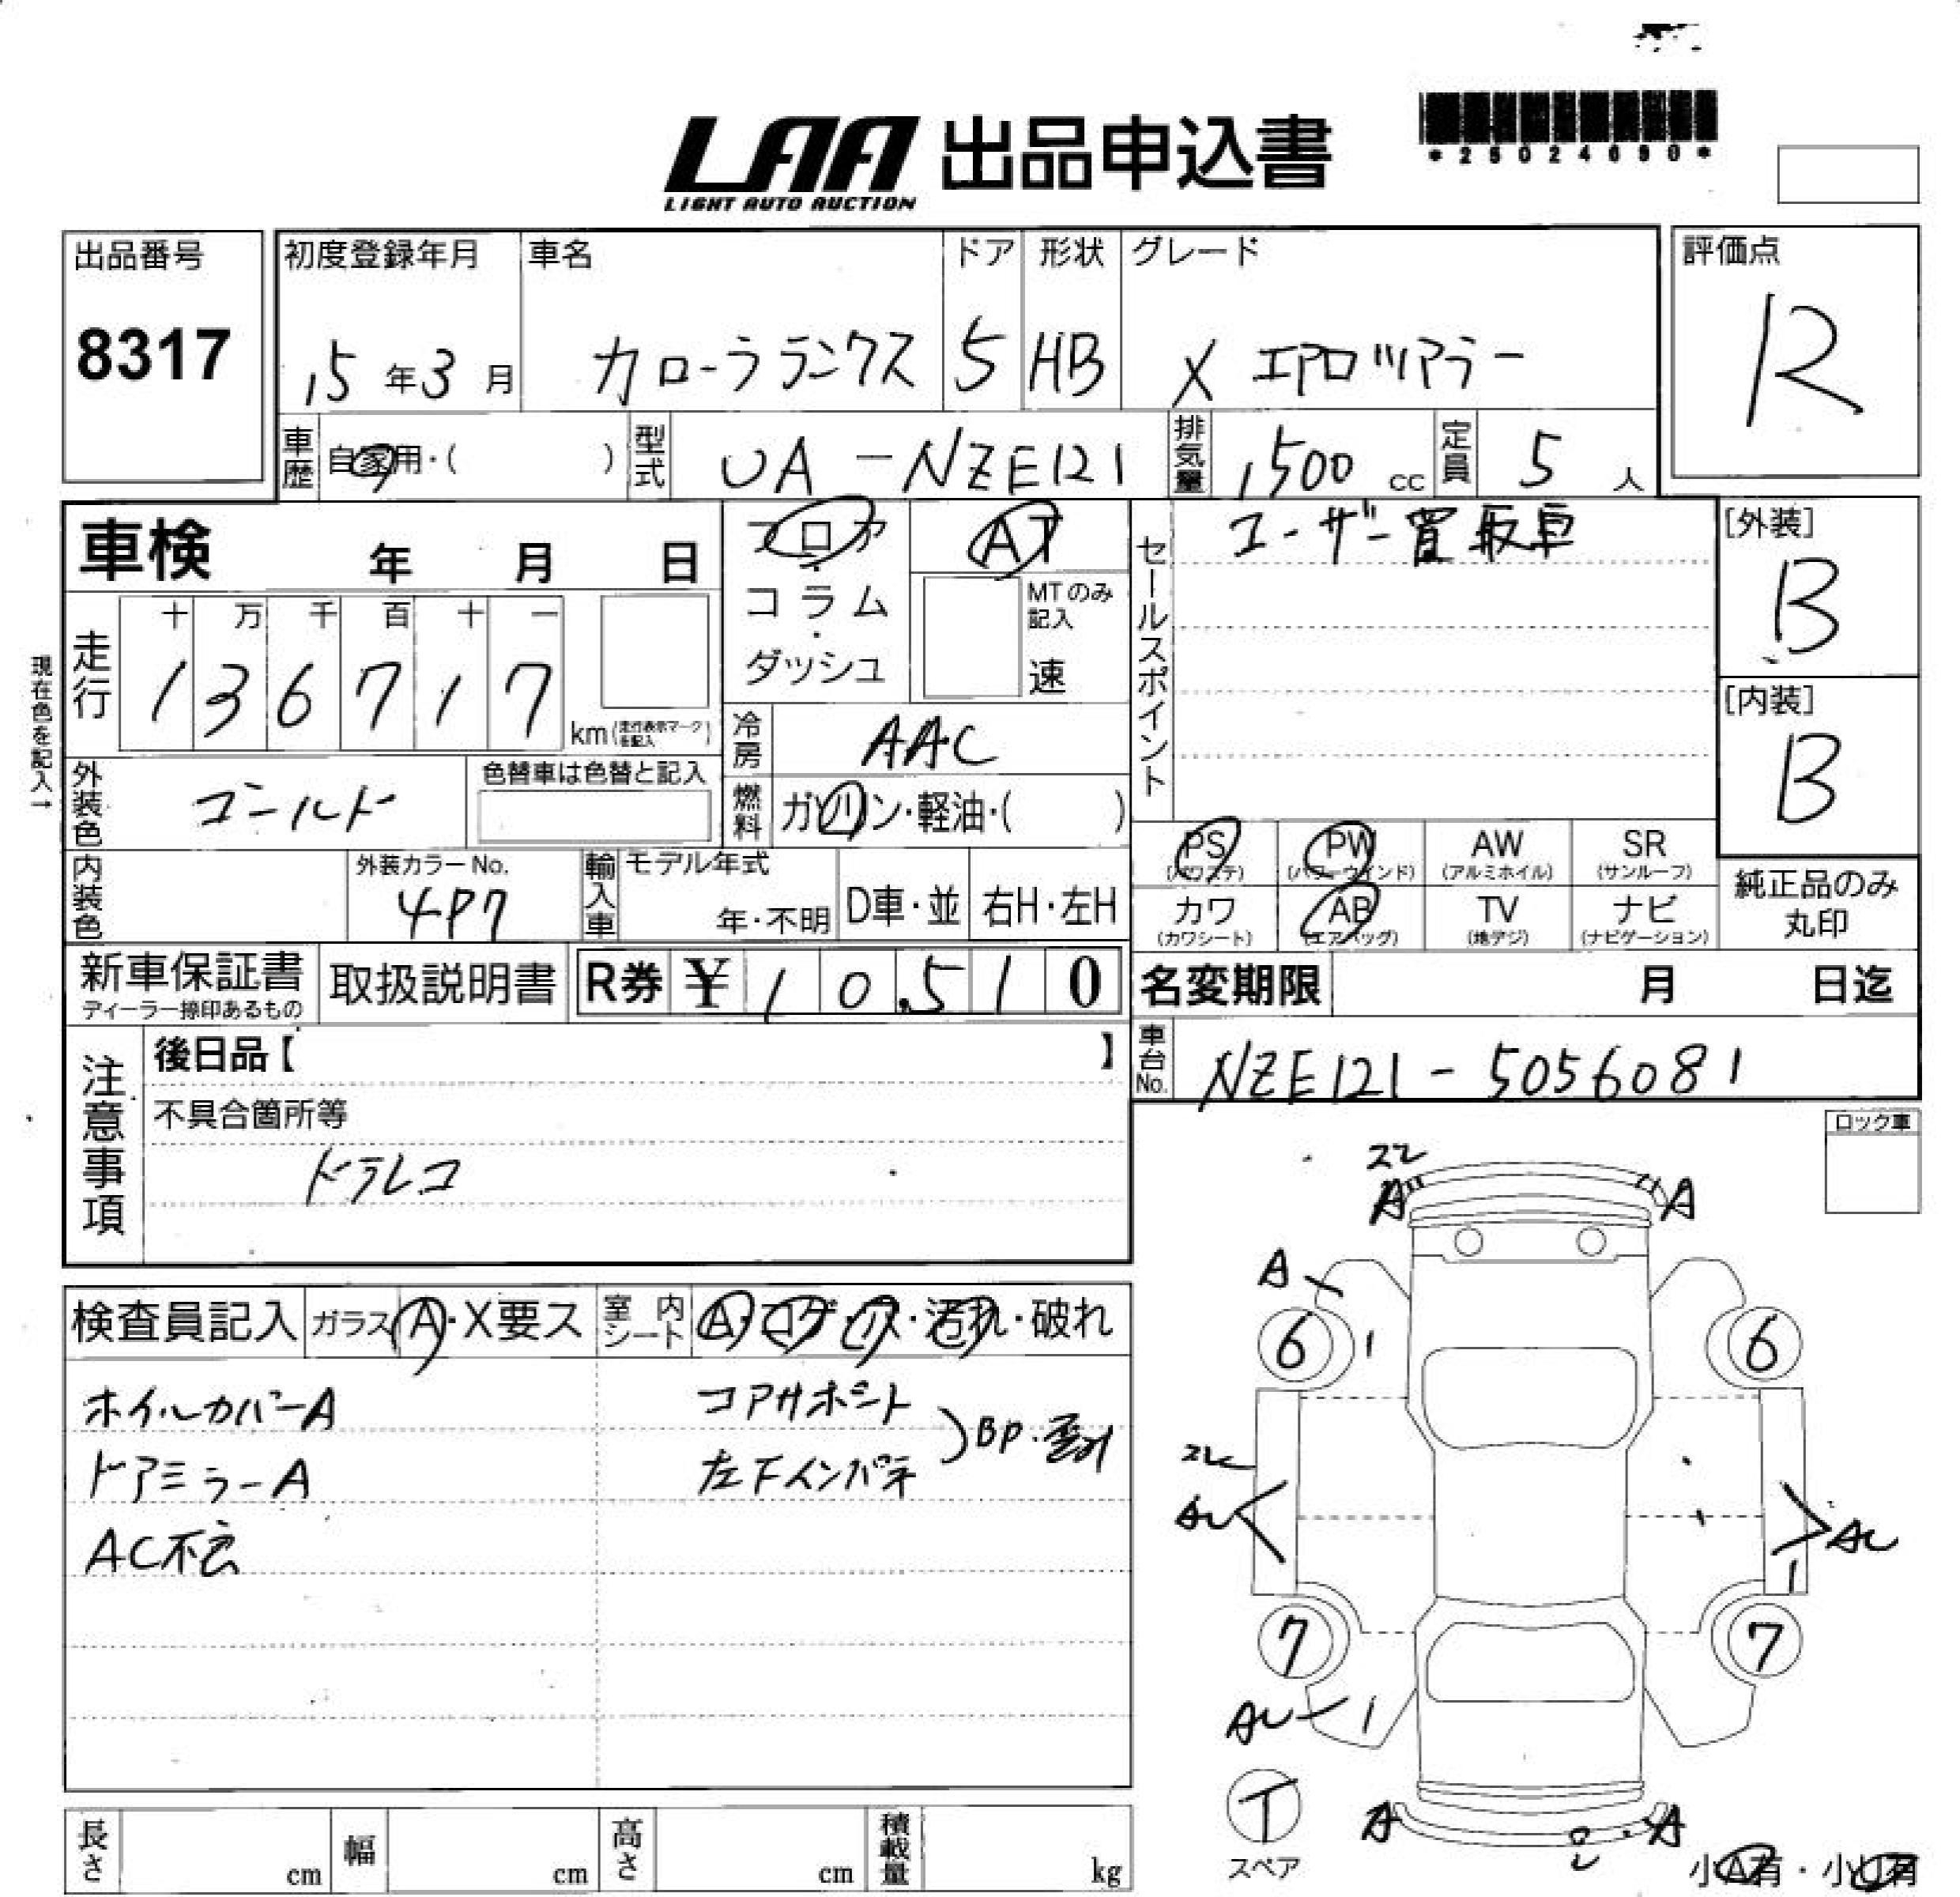 LAA 出品申込書
LIGHT AUTO AUCTION
*25024690*
出品番号
8317
初度登録年月 車名 ドア 形状 グレード
15年3月 カローラランクス 5 HB X エアロツアラー
評価点
R
車歴 自家用・( ) 型式 UA-NZE121 排気量 1500 cc 定員 5 人
車検 年 月 日
フロア
・
コラム
・
ダッシュ
AT
MTのみ記入
速
セールスポイント
ユーザー買取車
[外装]
B
[内装]
B
現在色を記入→
走行
十 万 千 百 十 一
1 3 6 7 1 7
km(走行表示マークを記入)
冷房 AAC
外装色 ゴールド
色替車は色替と記入
燃料 ガソリン・軽油・( )
PS (パワステ) PW (パワーウインド) AW (アルミホイル) SR (サンルーフ)
カワ (カワシート) AB (エアバッグ) TV (地デジ) ナビ (ナビゲーション)
純正品のみ
丸印
内装色
外装カラーNo.
4P7
輸入車 モデル年式
年・不明 D車・並 右H・左H
新車保証書
ディーラー捺印あるもの
取扱説明書
R券 ¥ 10,510
名変期限 月 日迄
車台No. NZE121-5056081
注意事項
後日品【 】
不具合箇所等
ドラレコ
ロック車
検査員記入 ガラス A・X要ス 室内シート A・コゲ・ス・汚れ・破れ
ホイルカバーA
ドアミラーA
AC不良
コアサポート
左下インパネ
BP・歪
スレ
A A
A
6 1 6
スレ
AU AU
1
7 7
AU 1
T
スペア
A A
2
小A有・小U有
長さ cm 幅 cm 高さ cm 積載量 kg